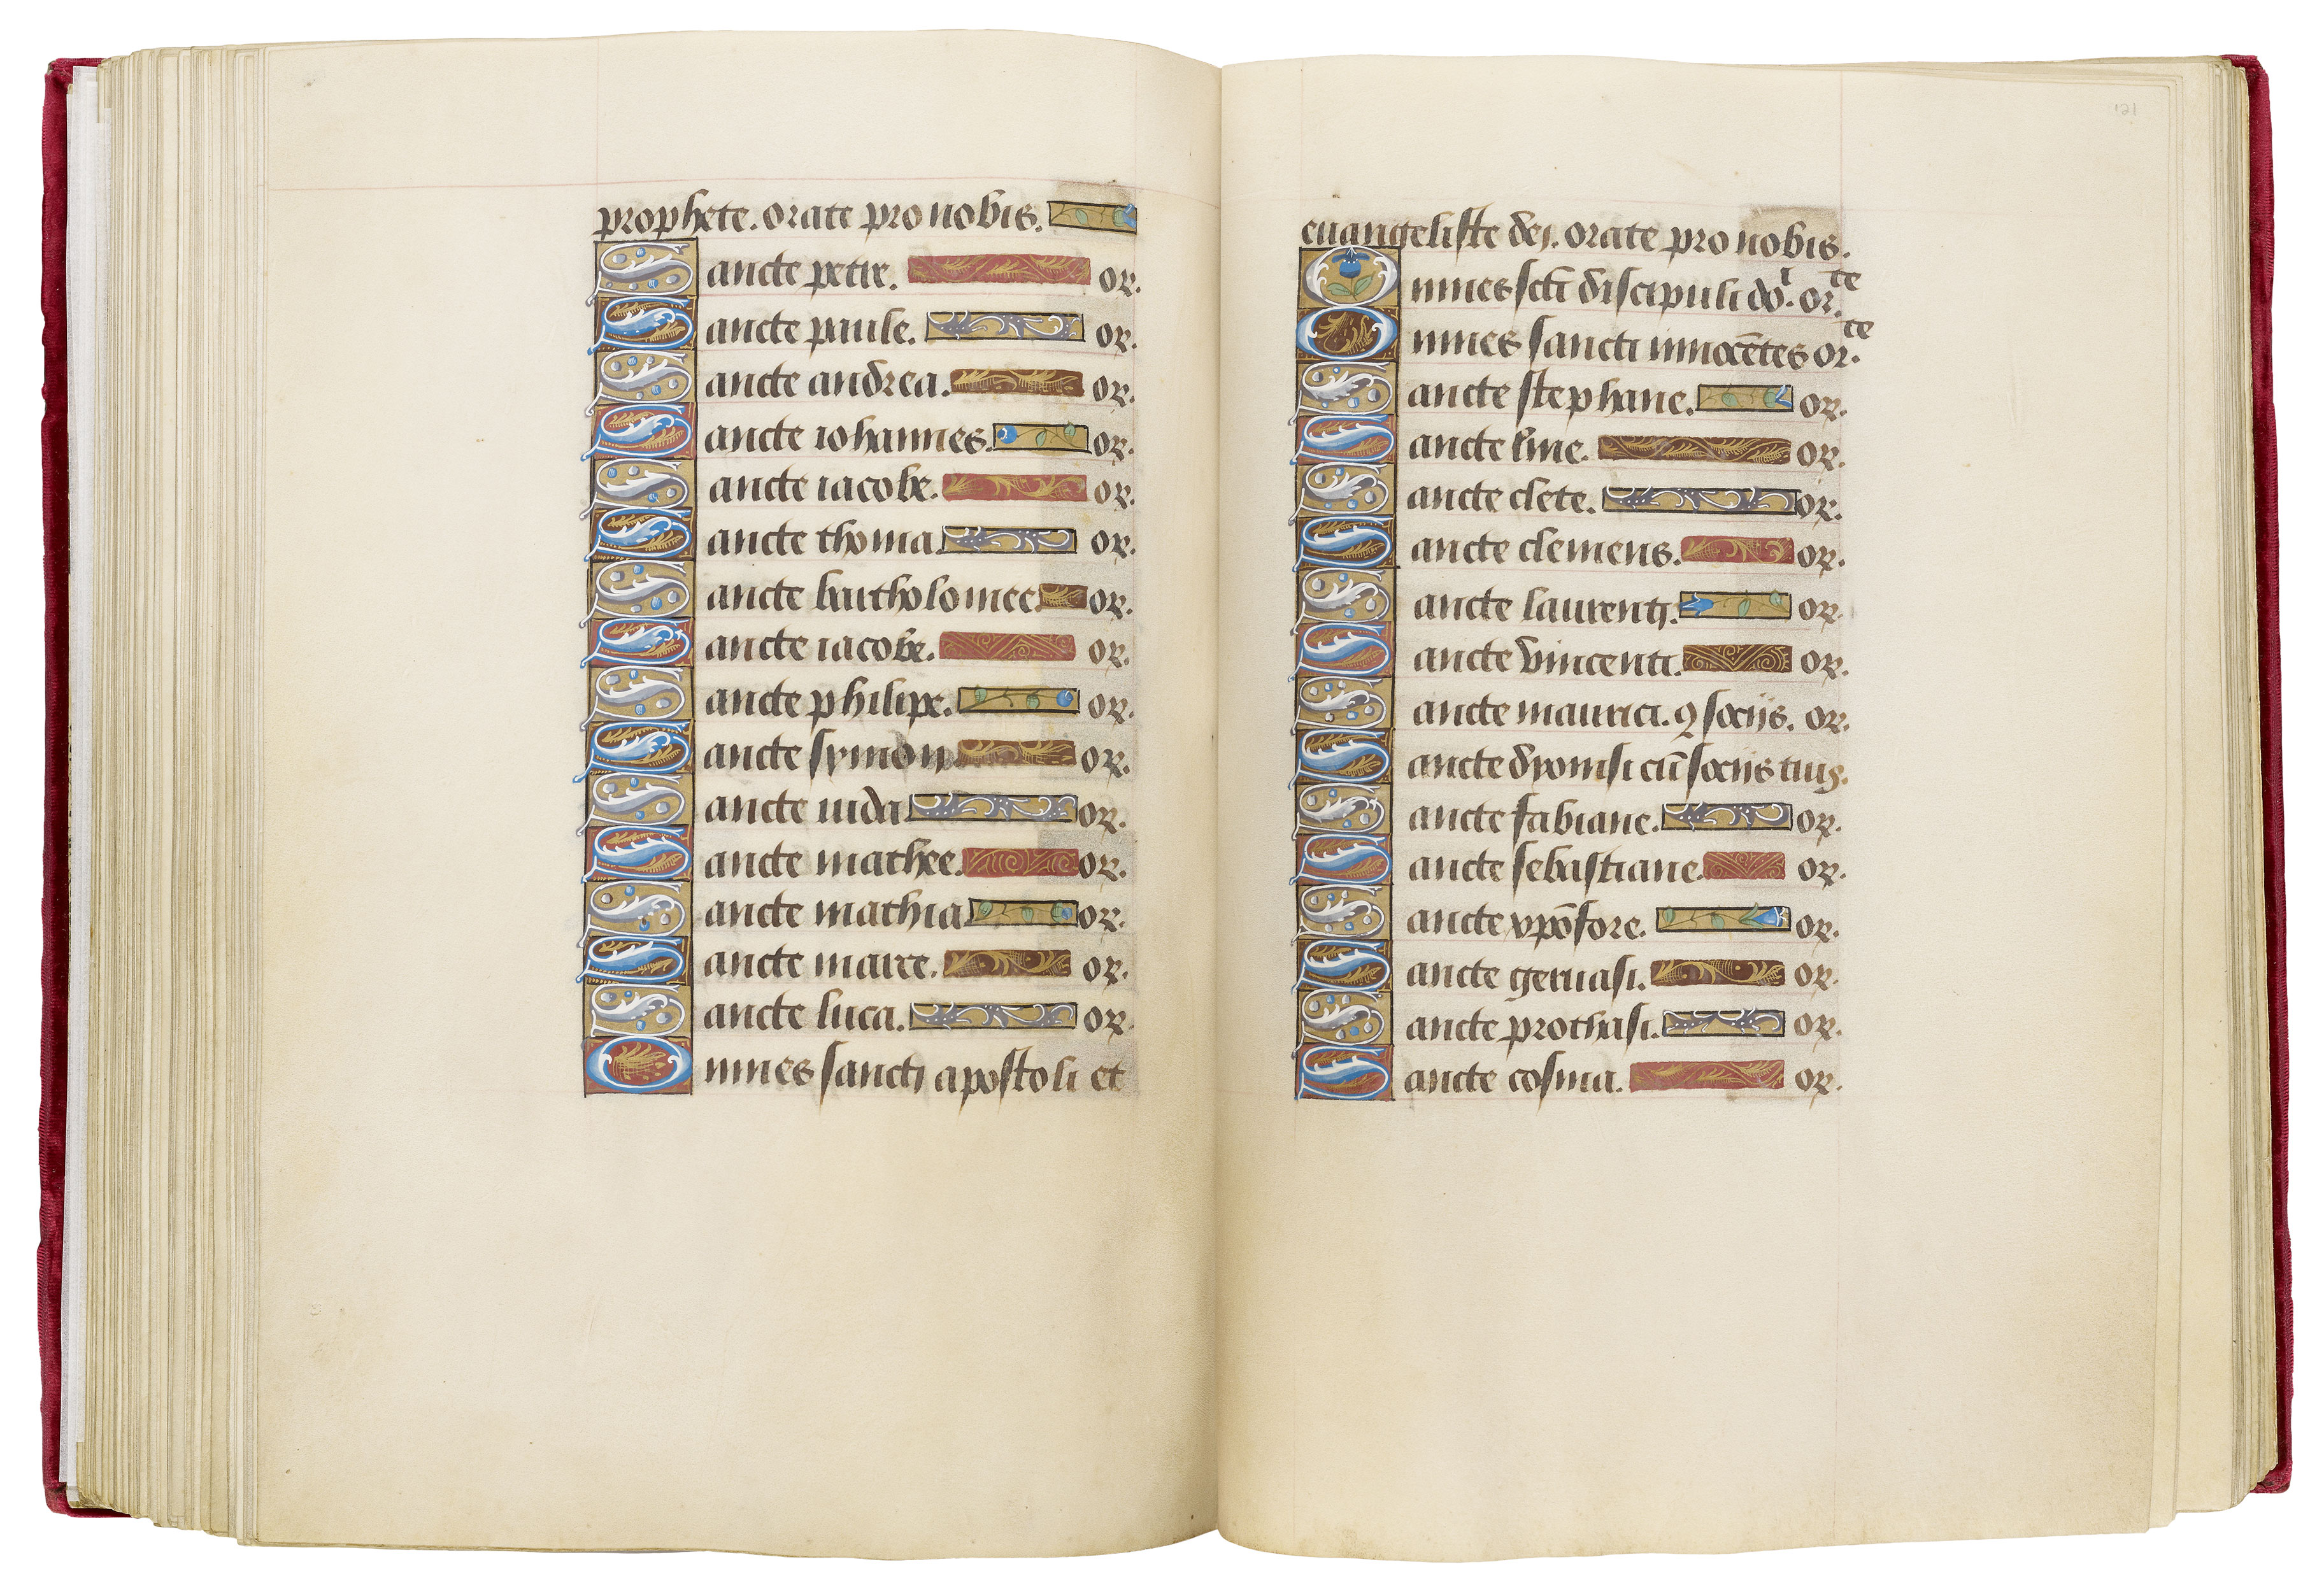 prophete. orate pro nobis.
Sancte petre. or.
Sancte paule. or.
Sancte andrea. or.
Sancte iohannes. or.
Sancte iacobe. or.
Sancte thoma. or.
Sancte bartholomee. or.
Sancte iacobe. or.
Sancte philipe. or.
Sancte symon. or.
Sancte iuda. or.
Sancte mathee. or.
Sancte mathia. or.
Sancte marce. or.
Sancte luca. or.
Omnes sancti apostoli et
121
euangeliste dei. orate pro nobis.
Omnes scti discipuli doⁱ. or.te
Omnes sancti innocētes or.te
Sancte stephane. or.
Sancte line. or.
Sancte clete. or.
Sancte clemens. or.
Sancte laurenti. or.
Sancte vincenti. or.
Sancte maurici. ꝯ socijs. or.
Sancte dyonisi cū socijs tuis.
Sancte fabiane. or.
Sancte sebastiane. or.
Sancte xpōfore. or.
Sancte geruasi. or.
Sancte prothasi. or.
Sancte cosma. or.